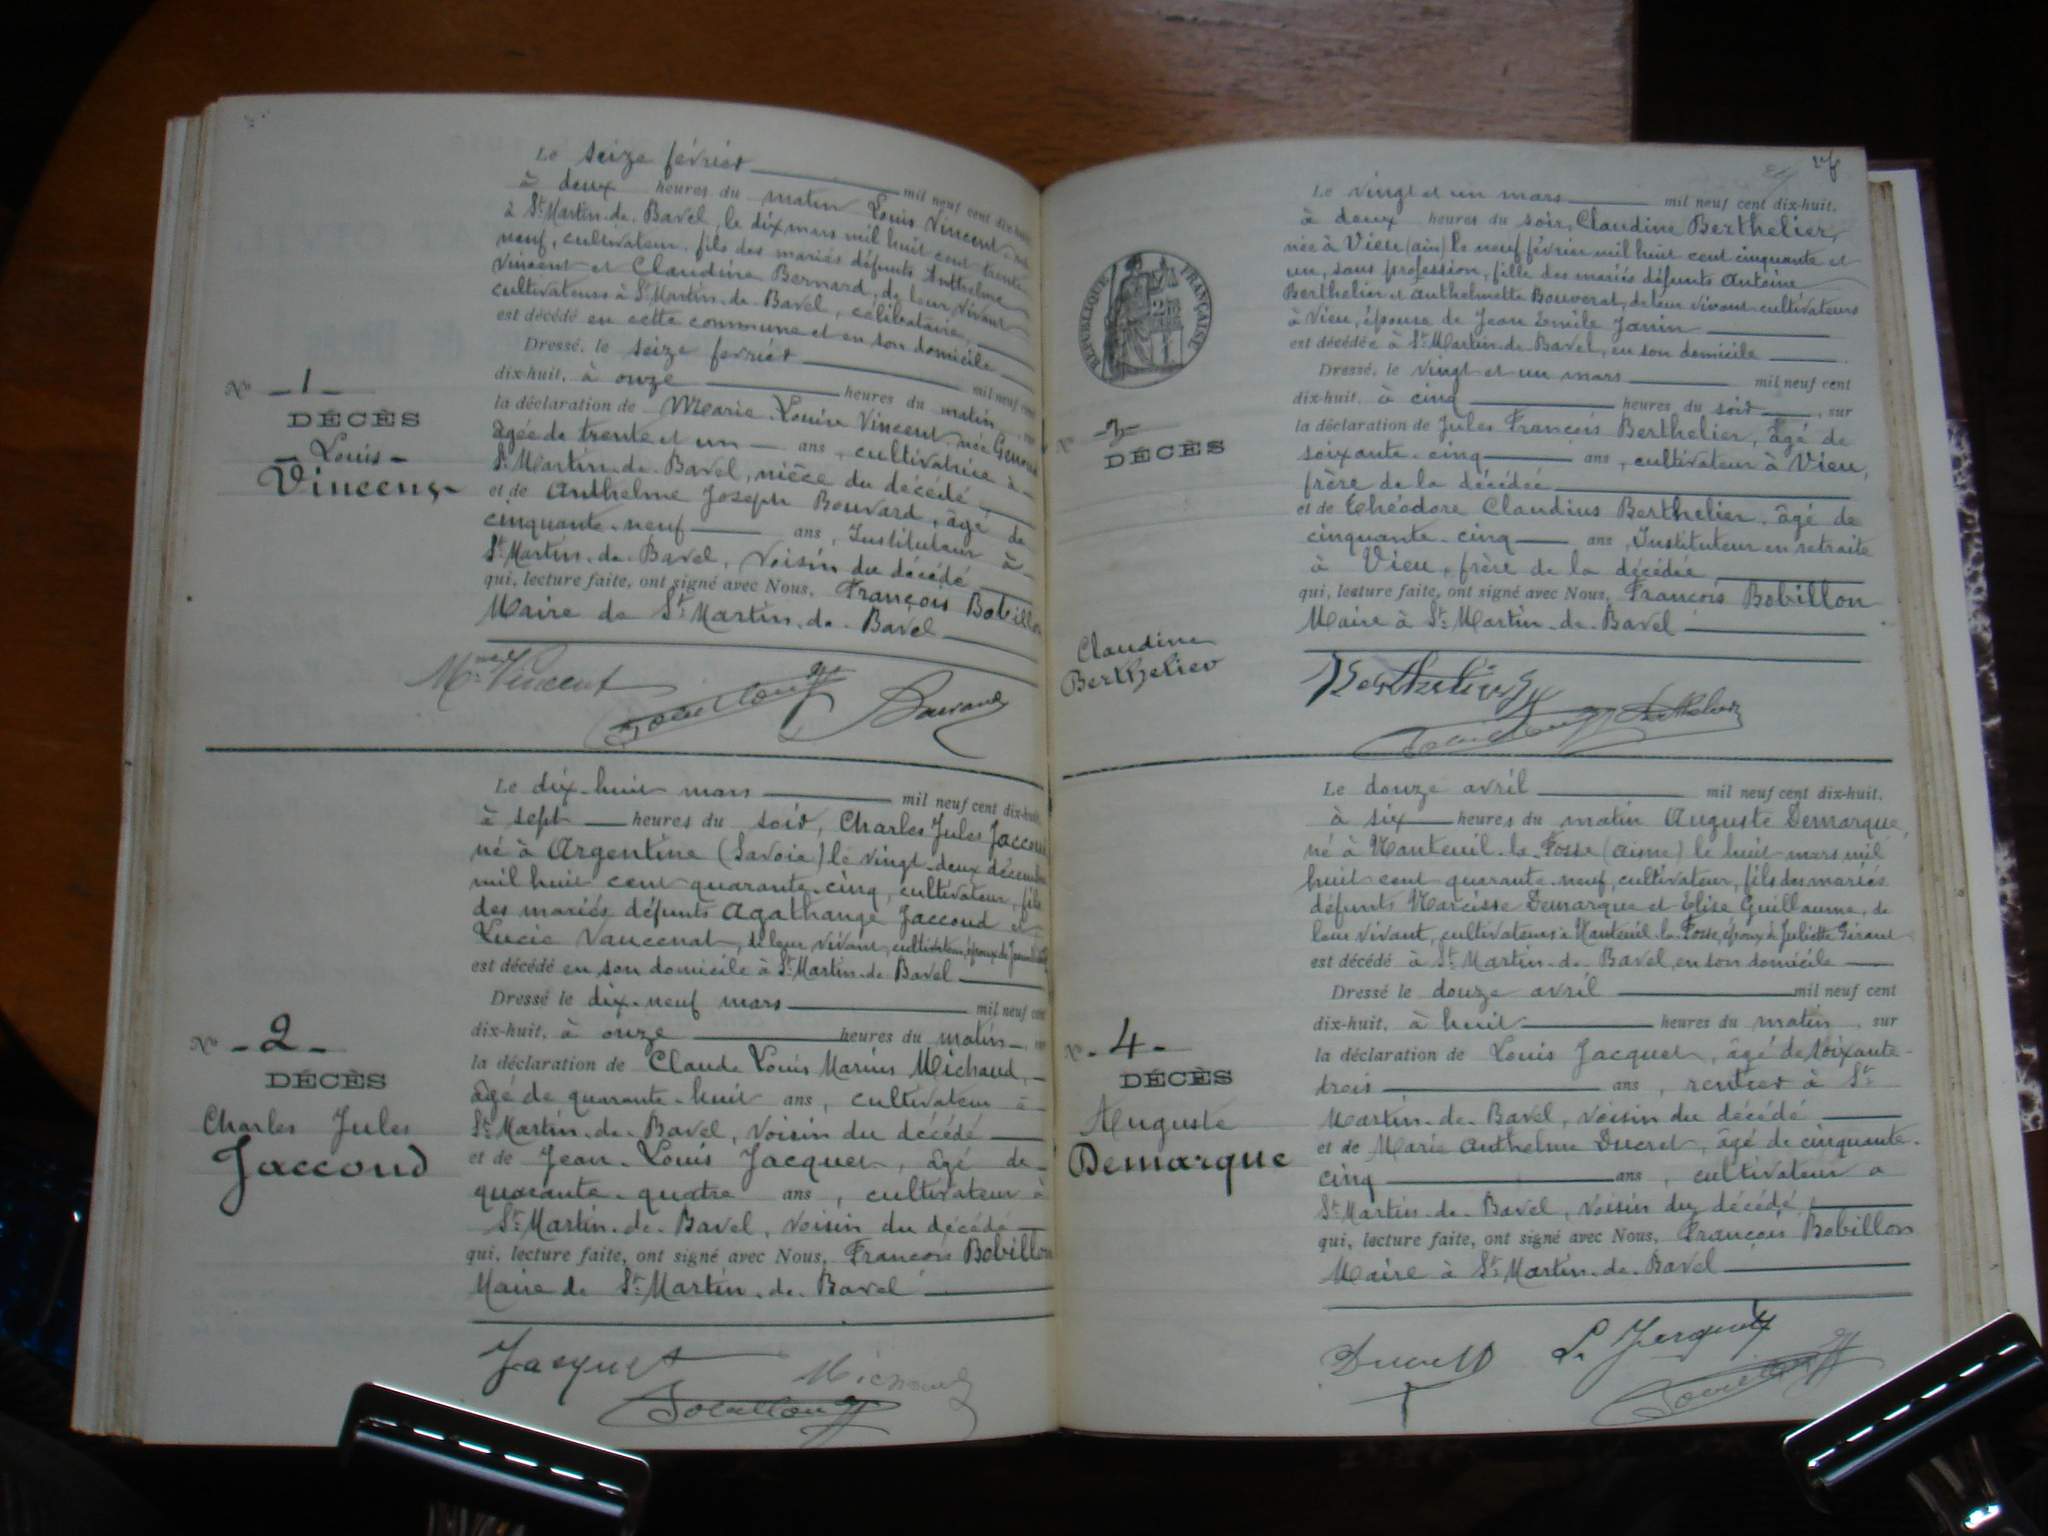 Le seize février mil neuf cent dix-huit
à deux heures du matin Louis Vincent
à St Martin-de-Bavel, le dix mars mil huit cent trente
neuf, cultivateur, fils des mariés défunts Anthelme
Vincent et Claudine Bernard, de leur vivant
cultivateurs à St Martin-de-Bavel, célibataire,
est décédé en cette commune et en son domicile
Dressé, le seize fevrier mil neuf cent
dix-huit, à onze heures du matin,
la déclaration de Marie Louise Vincent née Genoud
âgée de trente et un ans, cultivatrice à
St Martin-de-Bavel, nièce du décédé
et de Anthelme Joseph Bouvard, âgé de
cinquante-neuf ans, Instituteur à
St Martin-de-Bavel, voisin du décédé
qui, lecture faite, ont signé avec Nous, François Bobillon
Maire de St Martin-de-Bavel
No -1-
DÉCÈS
Louis
Vincent
Mme Vincent Bobillon Bouvard
Le dix-huit mars mil neuf cent dix-huit
à sept heures du soir, Charles Jules Jaccoud
né à Argentine (Savoie) le vingt-deux décembre
mil huit cent quarante-cinq, cultivateur, fils
des mariés défunts Agathange Jaccoud et
Lucie Vancenat, de leur vivant, cultivateurs, époux de
est décédé en son domicile à St Martin-de-Bavel
Dressé le dix-neuf mars mil neuf cent
dix-huit, à onze heures du matin,
la déclaration de Claude Louis Marius Michaud,
âgé de quarante-huit ans, cultivateur à
St Martin-de-Bavel, voisin du décédé
et de Jean-Louis Jacquet, âgé de
quarante-quatre ans, cultivateur à
St Martin-de-Bavel, voisin du décédé
qui, lecture faite, ont signé avec Nous, François Bobillon
Maire de St Martin-de-Bavel
No -2-
DÉCÈS
Charles Jules
Jaccoud
Jacquet Michaud
Bobillon
Le vingt et un mars mil neuf cent dix-huit,
à deux heures du soir, Claudine Berthelier,
née à Vieu (ain) le neuf février mil huit cent cinquante et
un, sans profession, fille des mariés défunts Antoine
Berthelier et Anthelmette Bouverat, de leur vivant cultivateurs
à Vieu, épouse de Jean Emile Janin
est décédée à St Martin-de-Bavel, en son domicile
Dressé, le vingt et un mars mil neuf cent
dix-huit, à cinq heures du soir, sur
la déclaration de Jules François Berthelier, âgé de
soixante-cinq ans, cultivateur à Vieu,
frère de la décédée
et de Théodore Claudius Berthelier, âgé de
cinquante-cinq ans, Instituteur en retraite
à Vieu, frère de la décédée,
qui, lecture faite, ont signé avec Nous, François Bobillon
Maire à St Martin-de-Bavel
RÉPUBLIQUE FRANÇAISE
No -3-
DÉCÈS
Claudine
Berthelier
Berthelier
Bobillon Berthelier
Le douze avril mil neuf cent dix-huit,
à six heures du matin Auguste Demarque,
né à Nanteuil-la-Fosse (aisne) le huit mars mil
huit cent quarante-neuf, cultivateur, fils des mariés
défunts Narcisse Demarque et Elise Guillaume, de
leur vivant, cultivateurs à Nanteuil-la-Fosse, époux de Juliette Giraud
est décédé à St Martin-de-Bavel, en son domicile
Dressé le douze avril mil neuf cent
dix-huit, à huit heures du matin, sur
la déclaration de Louis Jacquet, âgé de soixante-
trois ans, rentier à St
Martin-de-Bavel, voisin du décédé
et de Marie Anthelme Ducret, âgé de cinquante-
cinq ans, cultivateur à
St Martin-de-Bavel, voisin du décédé,
qui, lecture faite, ont signé avec Nous, François Bobillon
Maire à St Martin-de-Bavel
No -4-
DÉCÈS
Auguste
Demarque
Ducret L. Jacquet
Bobillon